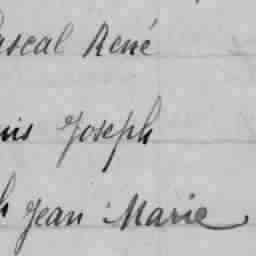 Pascal René
uis Joseph
h Jean Marie